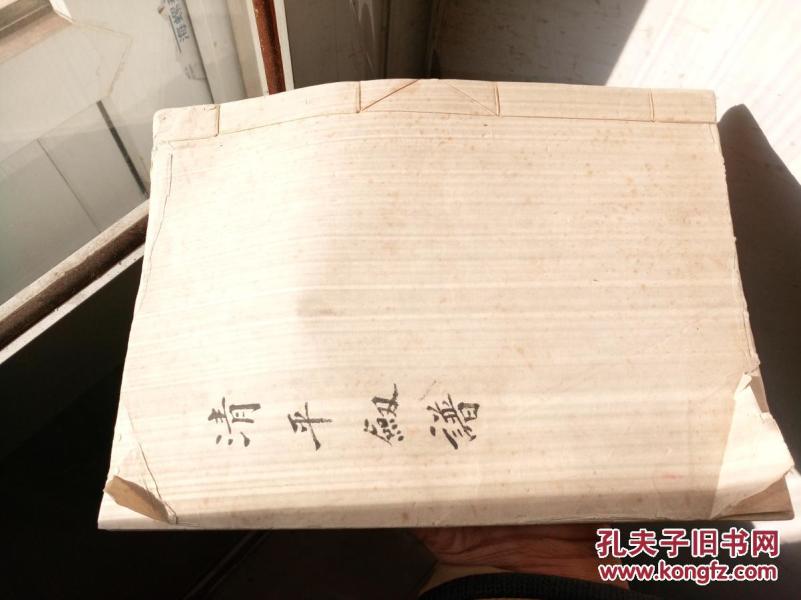 清平劔譜
孔夫子旧书网
www.kongfz.com